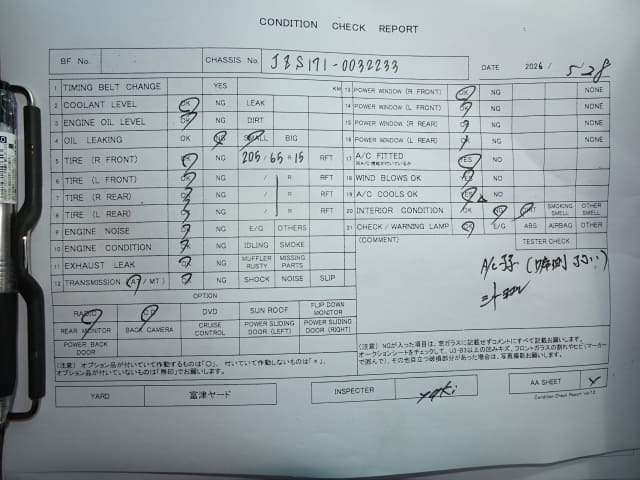 CONDITION CHECK REPORT
BF No.
CHASSIS No. JZS171-0032233
DATE 2026 / 5 28
1 TIMING BELT CHANGE YES KM
2 COOLANT LEVEL OK NG LEAK
3 ENGINE OIL LEVEL OK NG DIRT
4 OIL LEAKING OK NG SMALL BIG
5 TIRE (R FRONT) OK NG 205 / 65 R 15 RFT
6 TIRE (L FRONT) OK NG / R RFT
7 TIRE (R REAR) OK NG / R RFT
8 TIRE (L REAR) OK NG / R RFT
9 ENGINE NOISE NG E/G OTHERS
10 ENGINE CONDITION NG IDLING SMOKE
11 EXHAUST LEAK NG MUFFLER RUSTY MISSING PARTS
12 TRANSMISSION (AT / MT) NG SHOCK NOISE SLIP
OPTION
RADIO CD DVD SUN ROOF FLIP DOWN MONITOR
REAR MONITOR BACK CAMERA CRUISE CONTROL POWER SLIDING DOOR (LEFT) POWER SLIDING DOOR (RIGHT)
POWER BACK DOOR
(注意) オプション品が付いていて作動するものは「○」、付いていて作動しないものは「×」、
オプション品が付いていないものは「無印」でお願いします。
13 POWER WINDOW (R FRONT) OK NG NONE
14 POWER WINDOW (L FRONT) OK NG NONE
15 POWER WINDOW (R REAR) OK NG NONE
16 POWER WINDOW (L REAR) OK NG NONE
17 A/C FITTED YES NG
18 WIND BLOWS OK YES NG
19 A/C COOLS OK YES NG
20 INTERIOR CONDITION OK NG DIRT SMOKING SMELL OTHER SMELL
21 CHECK / WARNING LAMP OK E/G ABS AIRBAG OTHER
TESTER CHECK
(COMMENT)
A/C弱
(注意) NGが入った項目は、窓ガラスに記載せずコメントにすべて記載お願いします。
オークションシートをチェックして、U3・B3以上の凹みキズ、フロントガラスの割れやヒビ(マーカー
で囲んで)、その他目立つ破損部分があった場合は、写真撮影お願いします。
YARD 富津ヤード INSPECTER yuki AA SHEET
Condition Check Report Ver.7.2